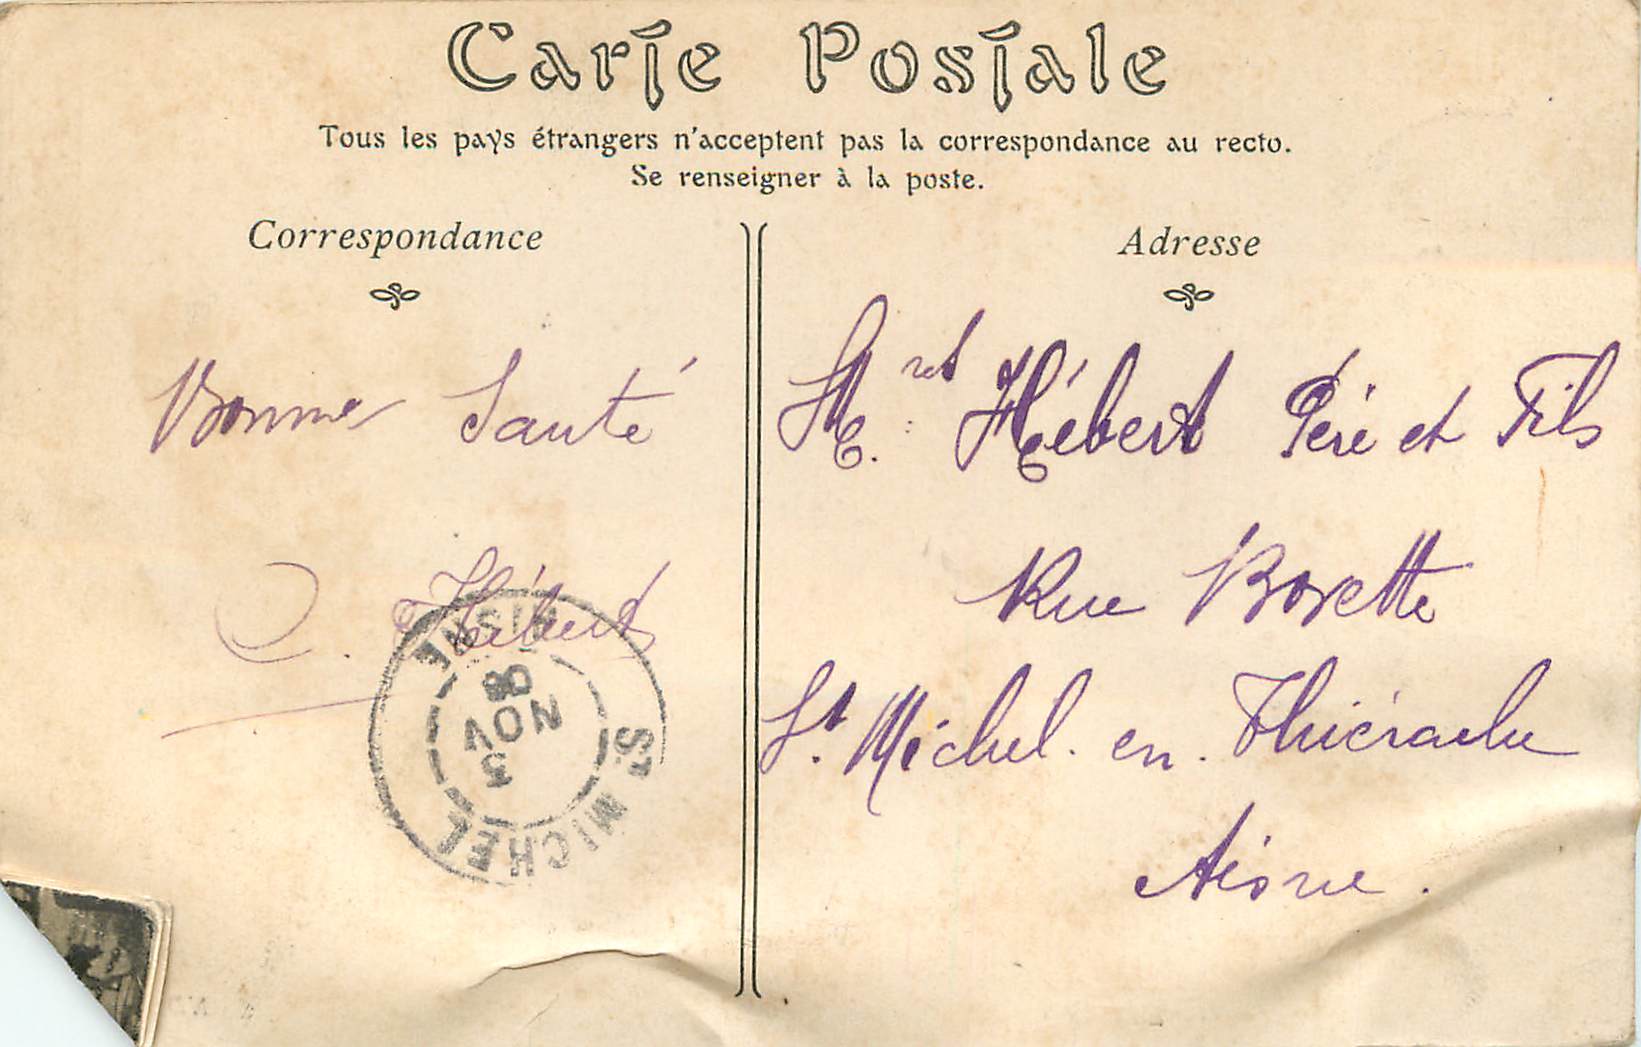 Carte Postale
Tous les pays étrangers n'acceptent pas la correspondance au recto.
Se renseigner à la poste.
Correspondance
Bonne Santé
Hébert
Adresse
Hébert Père et Fils
Rue
St. Michel. en. Thiérache
Aisne.
ST MICHEL
AISNE
3
NOV
08